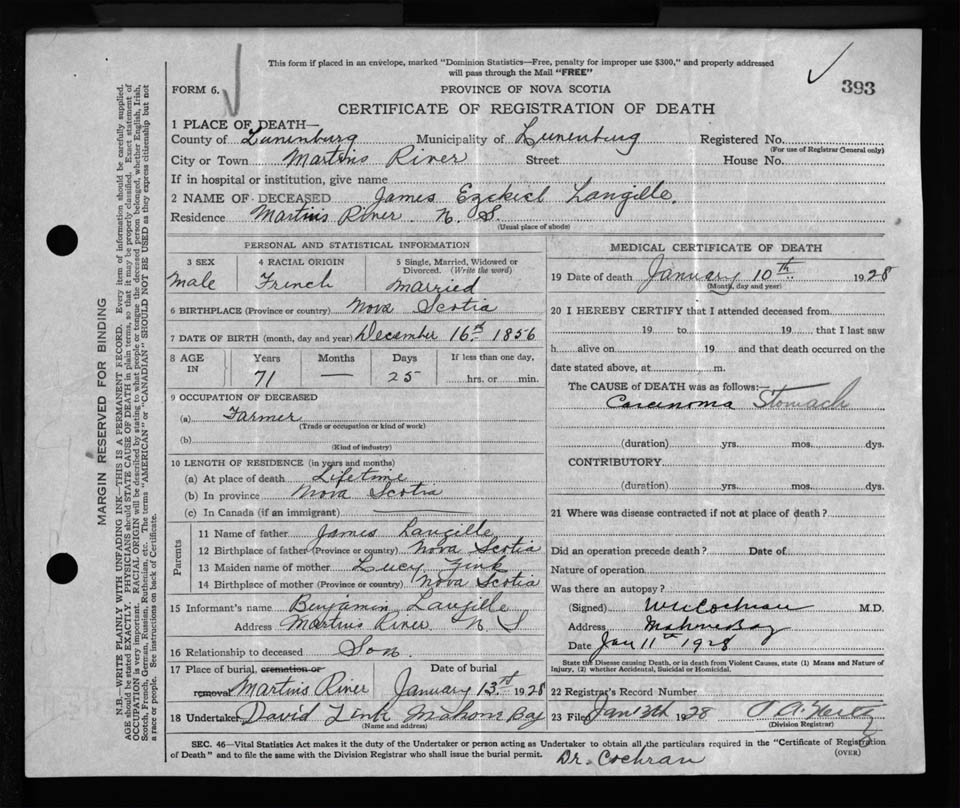 This form if placed in an envelope, marked "Dominion Statistics—Free, penalty for improper use $300," and properly addressed
will pass through the Mail "FREE"
393
FORM 6.
PROVINCE OF NOVA SCOTIA
CERTIFICATE OF REGISTRATION OF DEATH
1 PLACE OF DEATH—
County of Lunenburg Municipality of Lunenburg Registered No.
(For use of Registrar General only)
City or Town Martins River Street House No.
If in hospital or institution, give name
2 NAME OF DECEASED James Ezekiel Langille.
Residence Martins River N. S.
(Usual place of abode)
PERSONAL AND STATISTICAL INFORMATION
3 SEX 4 RACIAL ORIGIN 5 Single, Married, Widowed or
Divorced. (Write the word)
Male French Married
6 BIRTHPLACE (Province or country) Nova Scotia
7 DATE OF BIRTH (month, day and year) December 16th 1856
8 AGE IN Years Months Days If less than one day,
71 — 25 hrs. or min.
9 OCCUPATION OF DECEASED
(a) Farmer
(Trade or occupation or kind of work)
(b)
(Kind of industry)
10 LENGTH OF RESIDENCE (in years and months)
(a) At place of death Lifetime
(b) In province Nova Scotia
(c) In Canada (if an immigrant)
Parents
11 Name of father James Langille
12 Birthplace of father (Province or country) Nova Scotia
13 Maiden name of mother Lucy Zink
14 Birthplace of mother (Province or country) Nova Scotia
15 Informant's name Benjamin Langille
Address Martins River N S
16 Relationship to deceased Son.
17 Place of burial, cremation or Date of burial
removal Martins River January 13th 1928
18 Undertaker David Zink Mahone Bay
(Name and address)
MEDICAL CERTIFICATE OF DEATH
19 Date of death January 10th 1928
(Month, day and year)
20 I HEREBY CERTIFY that I attended deceased from
19 to 19 that I last saw
h alive on 19 and that death occurred on the
date stated above, at m.
The CAUSE of DEATH was as follows:—
Carcinoma Stomach
(duration) yrs. mos. dys.
CONTRIBUTORY
(duration) yrs. mos. dys.
21 Where was disease contracted if not at place of death?
Did an operation precede death? Date of
Nature of operation
Was there an autopsy?
(Signed) W C Cochran M.D.
Address Mahone Bay
Date Jan 11th 1928
State the Disease causing Death, or in death from Violent Causes, state (1) Means and Nature of
Injury, (2) whether Accidental, Suicidal or Homicidal.
22 Registrar's Record Number
23 Filed Jan 1928
(Division Registrar)
SEC. 46—Vital Statistics Act makes it the duty of the Undertaker or person acting as Undertaker to obtain all the particulars required in the "Certificate of Registration
of Death" and to file the same with the Division Registrar who shall issue the burial permit.
(OVER)
Dr. Cochran
MARGIN RESERVED FOR BINDING
N.B.—WRITE PLAINLY WITH UNFADING INK—THIS IS A PERMANENT RECORD. Every item of information should be carefully supplied.
AGE should be stated EXACTLY. PHYSICIANS should STATE CAUSE OF DEATH in plain terms, so that it may be properly classified. Exact statement of
OCCUPATION is very important. RACIAL ORIGIN will be described by stating to what people or tongue the deceased person belonged, whether English, Irish,
Scotch, French, German, Russian, Ruthenian, etc. The terms "AMERICAN" or "CANADIAN" SHOULD NOT BE USED as they express citizenship but not
a race or people. See instructions on back of Certificate.